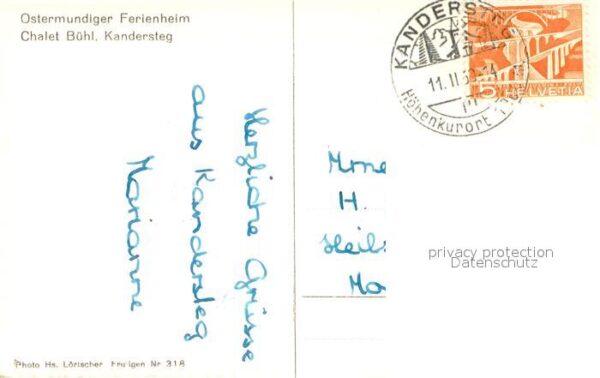 Ostermundiger Ferienheim
Chalet Bühl, Kandersteg
Herzliche Grüsse
aus Kandersteg
Marianne
Photo Hs. Lörtscher Frutigen Nr 318
KANDERSTEG
11. II
Höhenkurort
5 HELVETIA
H.
privacy protection
Datenschutz